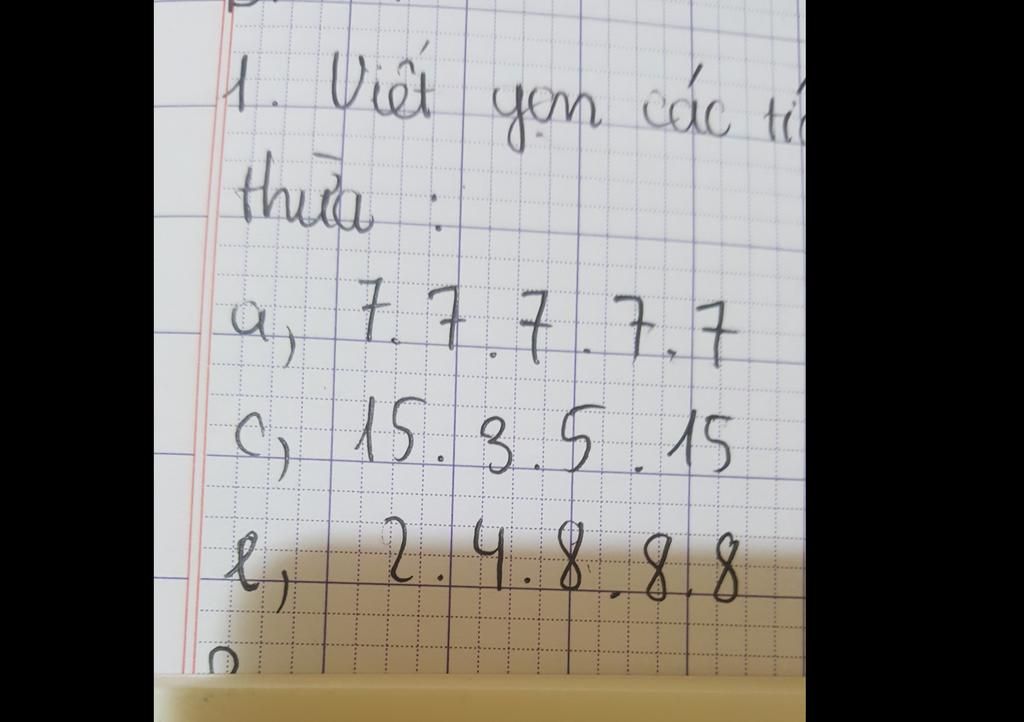 1. Viết gọn các tí
thừa :
a, 7.7.7.7.7
c, 15.3.5.15
e, 2.4.8.8.8